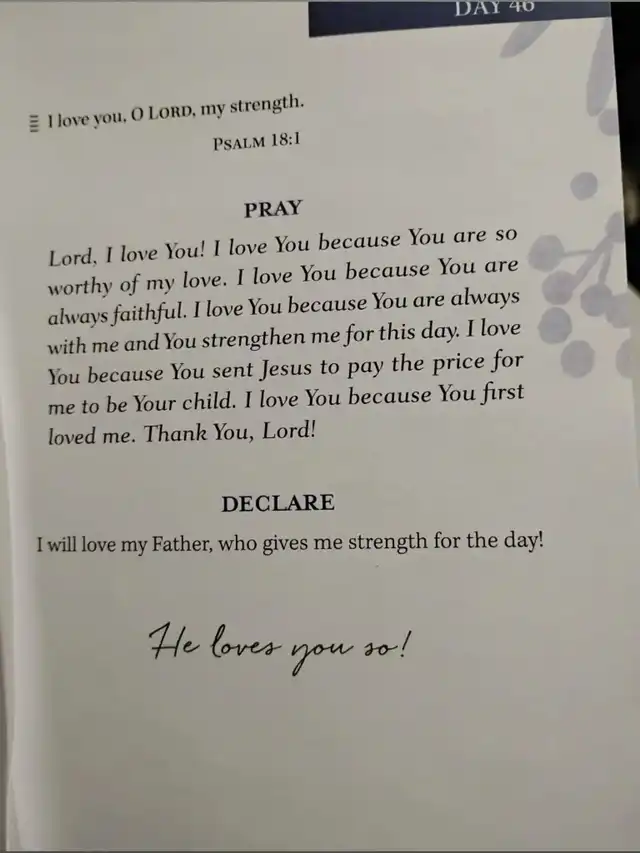 DAY 46
I love you, O LORD, my strength.
PSALM 18:1
PRAY
Lord, I love You! I love You because You are so
worthy of my love. I love You because You are
always faithful. I love You because You are always
with me and You strengthen me for this day. I love
You because You sent Jesus to pay the price for
me to be Your child. I love You because You first
loved me. Thank You, Lord!
DECLARE
I will love my Father, who gives me strength for the day!
He loves you so!